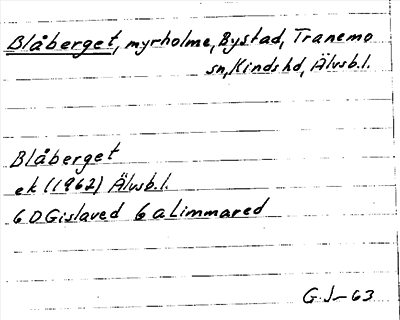 Blåberget, myrholme, Bystad, Tranemo
sn, Kinds hd, Älvsb.l.
Blåberget
ek (1962) Älvsb.l.
6 D Gislaved 6 a Limmared
G.J-63